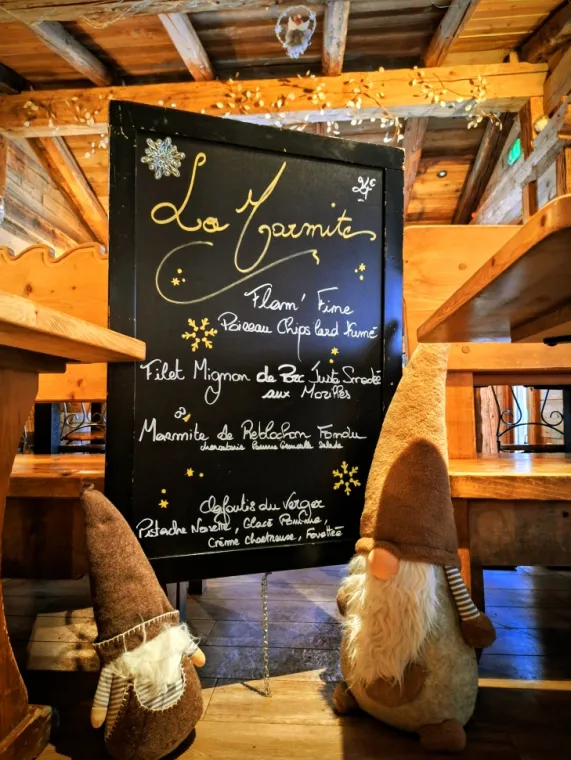 La Marmite
Flam' Fine
Poireau Chips lard fumé
Filet Mignon de Porc Juste Snacké
aux Morilles
Marmite de Reblochon Fondu
charcuterie Pomme Grenaille Salade
clafoutis du Verger
Pistache Noisette, Glace
Crème chartreuse,